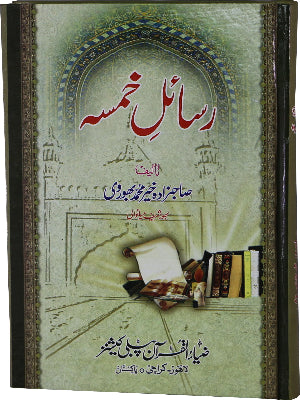 رسائلِ خمسہ
تالیف
صاحبزادہ خیر محمد بھوروی
ضیاء القرآن پبلی کیشنز
لاہور۔ کراچی ۔ پاکستان